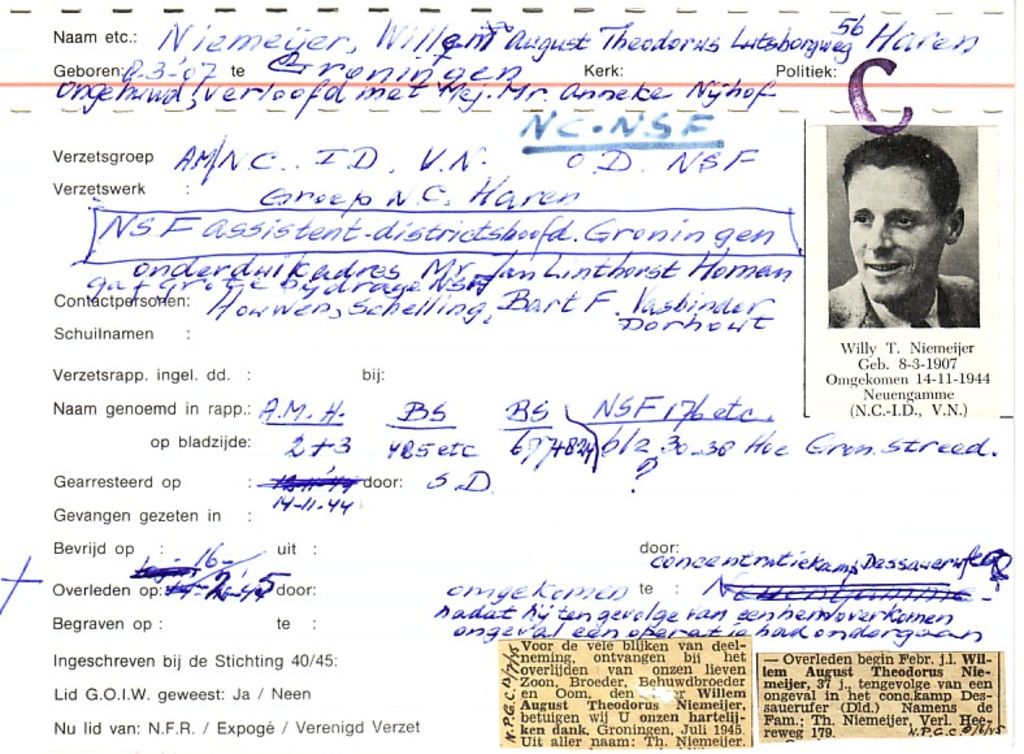 Naam etc.: Niemeijer, Willem August Theodorus Lutsborgweg 56 Haren
Geboren: 8-3-'07 te Groningen Kerk: Politiek: C
ongehuwd, verloofd met Mej. Mr. Anneke Nijhof
NC-NSF
Verzetsgroep AM/NC. ID. V.N. O.D. NSF
Verzetswerk : Groep N.C. Haren
NSF assistent-districtshoofd. Groningen
onderduikadres Mr. Jan Linthorst Homan
gaf grote bijdrage NSF
Contactpersonen: Houwen, Schelling, Bart F. Vasbinder
Dorhout
Schuilnamen :
Willy T. Niemeijer
Geb. 8-3-1907
Omgekomen 14-11-1944
Neuengamme
(N.C.-I.D., V.N.)
Verzetsrapp. ingel. dd. : bij:
Naam genoemd in rapp.: A.M.H. BS BS NSF 176 etc.
op bladzijde: 2+3 485 etc 677+824 blz 30-38 Hoe Gron. streed.
?
Gearresteerd op : door: S.D.
14-11-44
Gevangen gezeten in :
Bevrijd op : uit : door:
concentratiekamp Dessauerufer
Overleden op: 16-2-45 door: omgekomen te :
nadat hij ten gevolge van een hem overkomen
Begraven op : te :
ongeval een operatie had ondergaan
Ingeschreven bij de Stichting 40/45:
Lid G.O.I.W. geweest: Ja / Neen
Nu lid van: N.F.R. / Expogé / Verenigd Verzet
Voor de vele blijken van deel-
neming, ontvangen bij het
overlijden van onzen lieven
Zoon, Broeder, Behuwdbroeder
en Oom, den Willem
August Theodorus Niemeijer,
betuigen wij U onzen hartelij-
ken dank. Groningen, Juli 1945.
Uit aller naam: Th. Niemeijer.
N.P.G.C.
— Overleden begin Febr. j.l. Wil-
lem August Theodorus Nie-
meijer, 37 j., tengevolge van een
ongeval in het conc.kamp Des-
sauerufer (Dld.) Namens de
Fam.: Th. Niemeijer, Verl. Hee-
reweg 179.
N.P.G.C